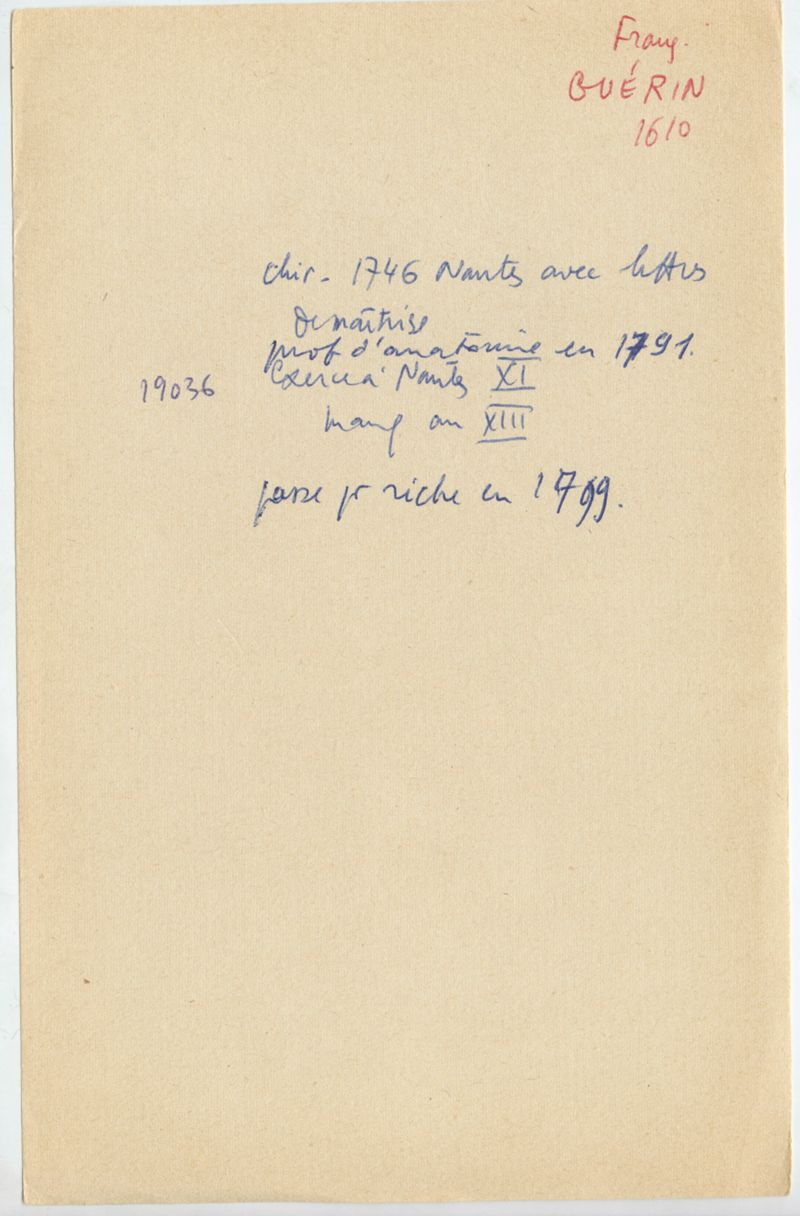 Franç.
GUÉRIN
1610
chir. 1746 Nantes avec lettres
de maîtrise
prof d'anatomie en 1791.
19036 Exerce à Nantes XI
manq an XIII
passe pr riche en 1799.